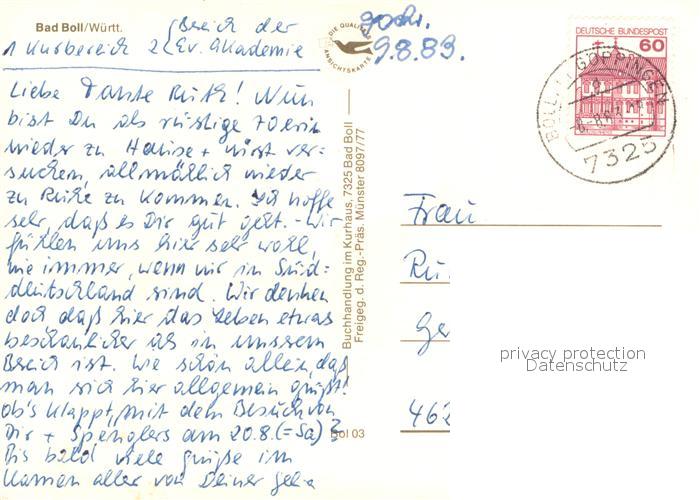 Bad Boll/Württ.
1 Kurbereich 2 (Bereich der
Ev. Akademie
DIE QUALITÄTS
ANSICHTSKARTE
9.8.83.
DEUTSCHE BUNDESPOST
60
BOLL, KR GÖPPINGEN
7325
Liebe Tante Ruth! Nun
bist Du als rüstige 70erin
wieder zu Hause + wirst ver-
suchen, allmählich wieder
zu Ruhe zu kommen. Ich hoffe
sehr, daß es Dir gut geht. - Wir
fühlen uns hier sehr wohl,
wie immer, wenn wir in Süd=
deutschland sind. Wir denken
doch daß hier das Leben etwas
beschaulicher als in unserem
Bereich ist. Wie schön allein, daß
man sich hier allgemein grüßt!
Ob's klappt, mit dem Besuch von
Dir + Spenglers am 20.8. (=Sa)?
Bis bald viele Grüße im
Namen aller von Deiner
Buchhandlung im Kurhaus, 7325 Bad Boll
Freigeg. d. Reg.-Präs. Münster 8097/77
Bol 03
Frau
Ru
Ge
462
privacy protection
Datenschutz